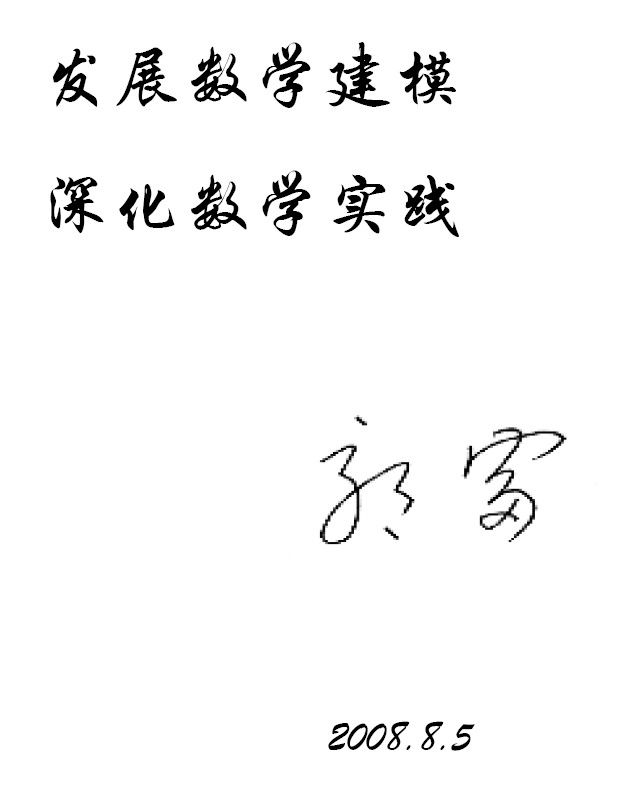 发展数学建模
深化数学实践
郭雷
2008.8.5